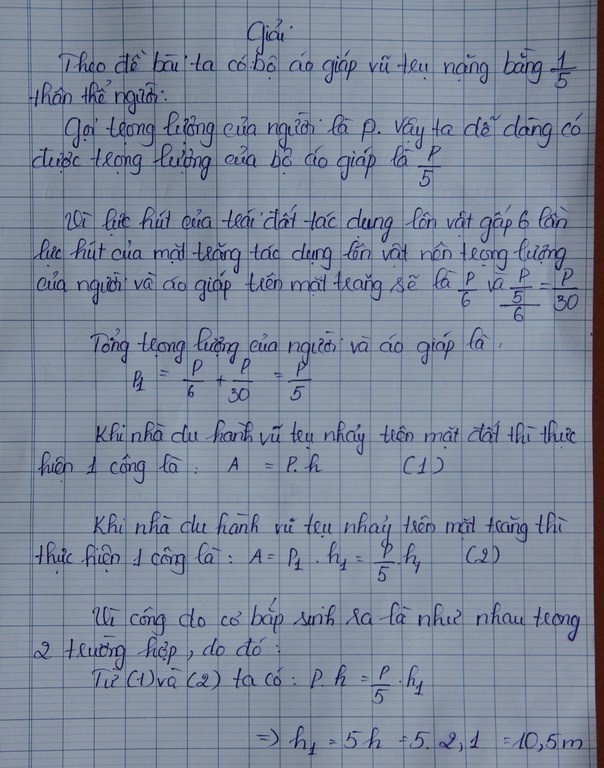 Giải:
Theo đề bài ta có bộ áo giáp vũ trụ nặng bằng 1/5
thân thể người:
Gọi trọng lượng của người là P. Vậy ta dễ dàng có
được trọng lượng của bộ áo giáp là P/5
Vì lực hút của trái đất tác dụng lên vật gấp 6 lần
lực hút của mặt trăng tác dụng lên vật nên trọng lượng
của người và áo giáp trên mặt trăng sẽ là P/6 và (P/5)/6 = P/30
Tổng trọng lượng của người và áo giáp là:
P₁ = P/6 + P/30 = P/5
Khi nhà du hành vũ trụ nhảy trên mặt đất thì thực
hiện 1 công là: A = P.h (1)
Khi nhà du hành vũ trụ nhảy trên mặt trăng thì
thực hiện 1 công là: A = P₁ . h₁ = P/5 . h₁ (2)
Vì công do cơ bắp sinh ra là như nhau trong
2 trường hợp, do đó:
Từ (1) và (2) ta có: P.h = P/5 . h₁
=> h₁ = 5h = 5. 2,1 = 10,5m